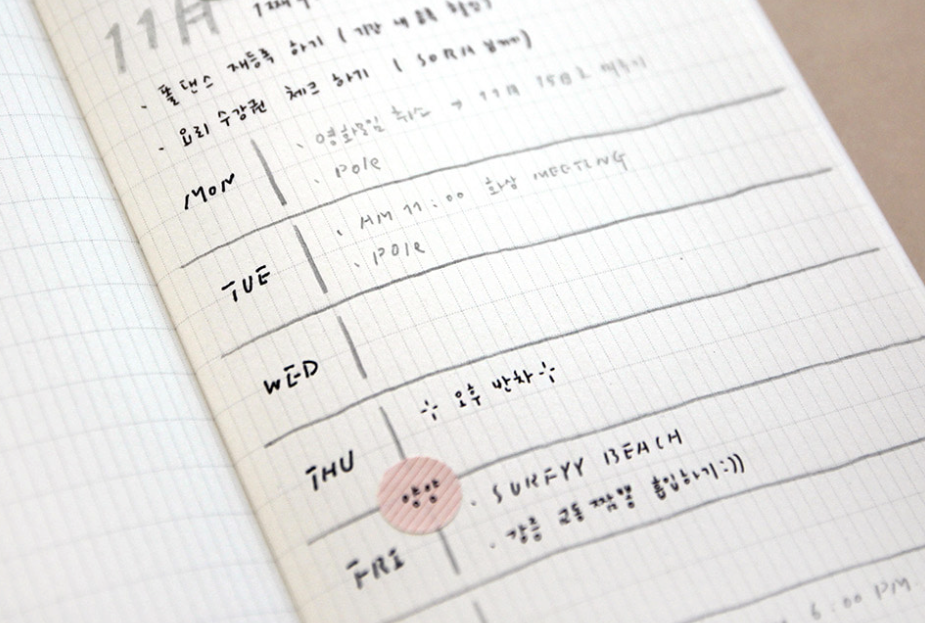 11月 1째주
· 폴댄스 재등록 하기 (기간 내
· 요리 수강권 체크 하기 (SORA
MON
· 영화모임 취소 → 11月 15日로
· Pole
TUE
· AM 11:00 화상 MEETING
· POle
WED
THU
오후 반차
양양
FRI
· SURFYY BEACH
· 강릉 교동짬뽕 흡입하기:))
6:00 PM